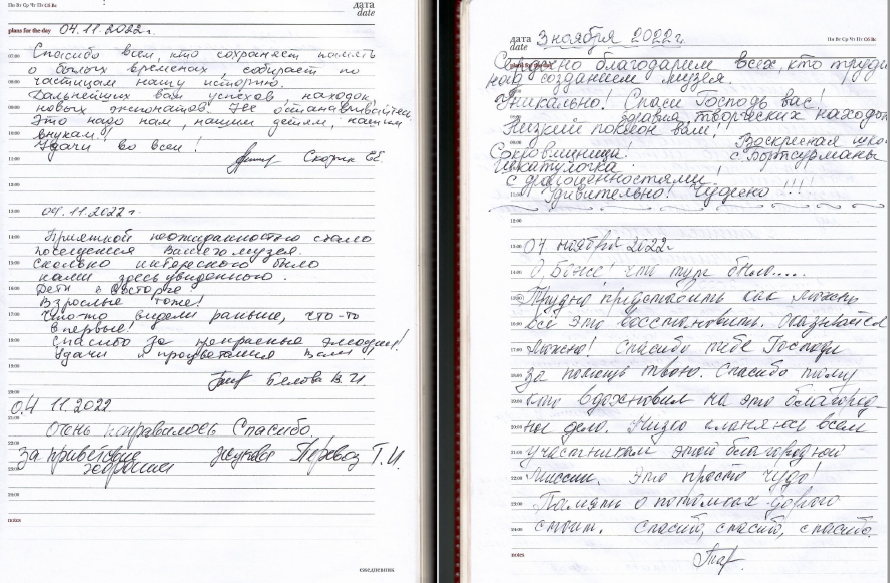 Пн Вт Ср Чт Пт Сб Вс
дата
date
plans for the day 04.11.2022г.
07:00 Спасибо всем, кто сохраняет память
08:00 о былых временах, собирает по
частицам нашу историю.
Дальнейших вам успехов, находок,
09:00 новых экспонатов. Не останавливайтесь.
Это надо нам, нашим детям, нашим
10:00 внукам!
Удачи во всём!
11:00 Скорик
12:00
13:00 04.11.2022г.
14:00 Приятной неожиданностью стало
посещение Вашего музея.
15:00 Сколько интересного было
нами здесь увиденного.
16:00 Дети в восторге
Взрослые тоже!
17:00 Что-то видели раньше, что-то
впервые!
18:00 Спасибо за прекрасные эмоции!
Удачи и процветания Вам!
19:00
20:00 Белова В.И.
04 11.2022
21:00 Очень понравилось Спасибо
22:00 За приветствие Т.И.
23:00 хорошая
24:00
notes
ежедневник
дата
date
3 ноября 2022г.
Пн Вт Ср Чт Пт Сб Вс
благодарим всех, кто труди
над созданием музея.
Уникально! Спаси Господь вас!
творческих находок
Низкий поклон вам!!
Воскресная шко-
Сокровищница! с. Портсурманы
Шкатулочка
с драгоценностями!
Удивительно! Чудесно!!!
12:00
13:00 04 ноября 2022г
14:00 О, Боже! что тут было.....
15:00 Трудно представить как можно
16:00 всё это восстановить. Оказывается
17:00 можно! Спасибо тебе Господи
18:00 за помощь твою. Спасибо тому
19:00 кто вдохновил на это благород-
20:00 ное дело. Низко кланяюсь всем
21:00 участникам этой благородной
22:00 миссии. Это просто чудо!
23:00 Память о потомках дорого
24:00 стоит. Спасибо, спасибо, спасибо.
notes